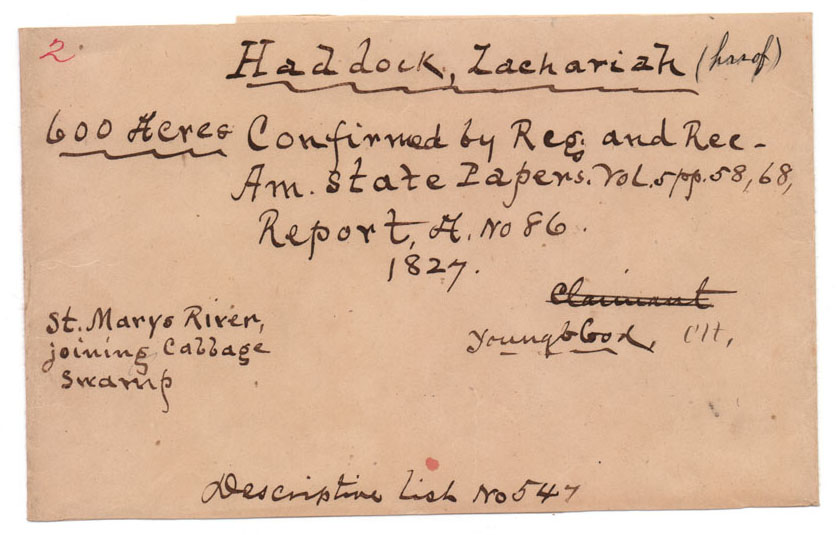 2.
Haddock, Zachariah (hrs of)
600 Acres Confirmed by Reg. and Rec-
Am. State Papers. Vol. 5 pp. 58, 68,
Report, A. No 86.
1827.
Claimant
St. Marys River,
joining Cabbage
Swamp
Youngblood, Clt.
Descriptive list No 547